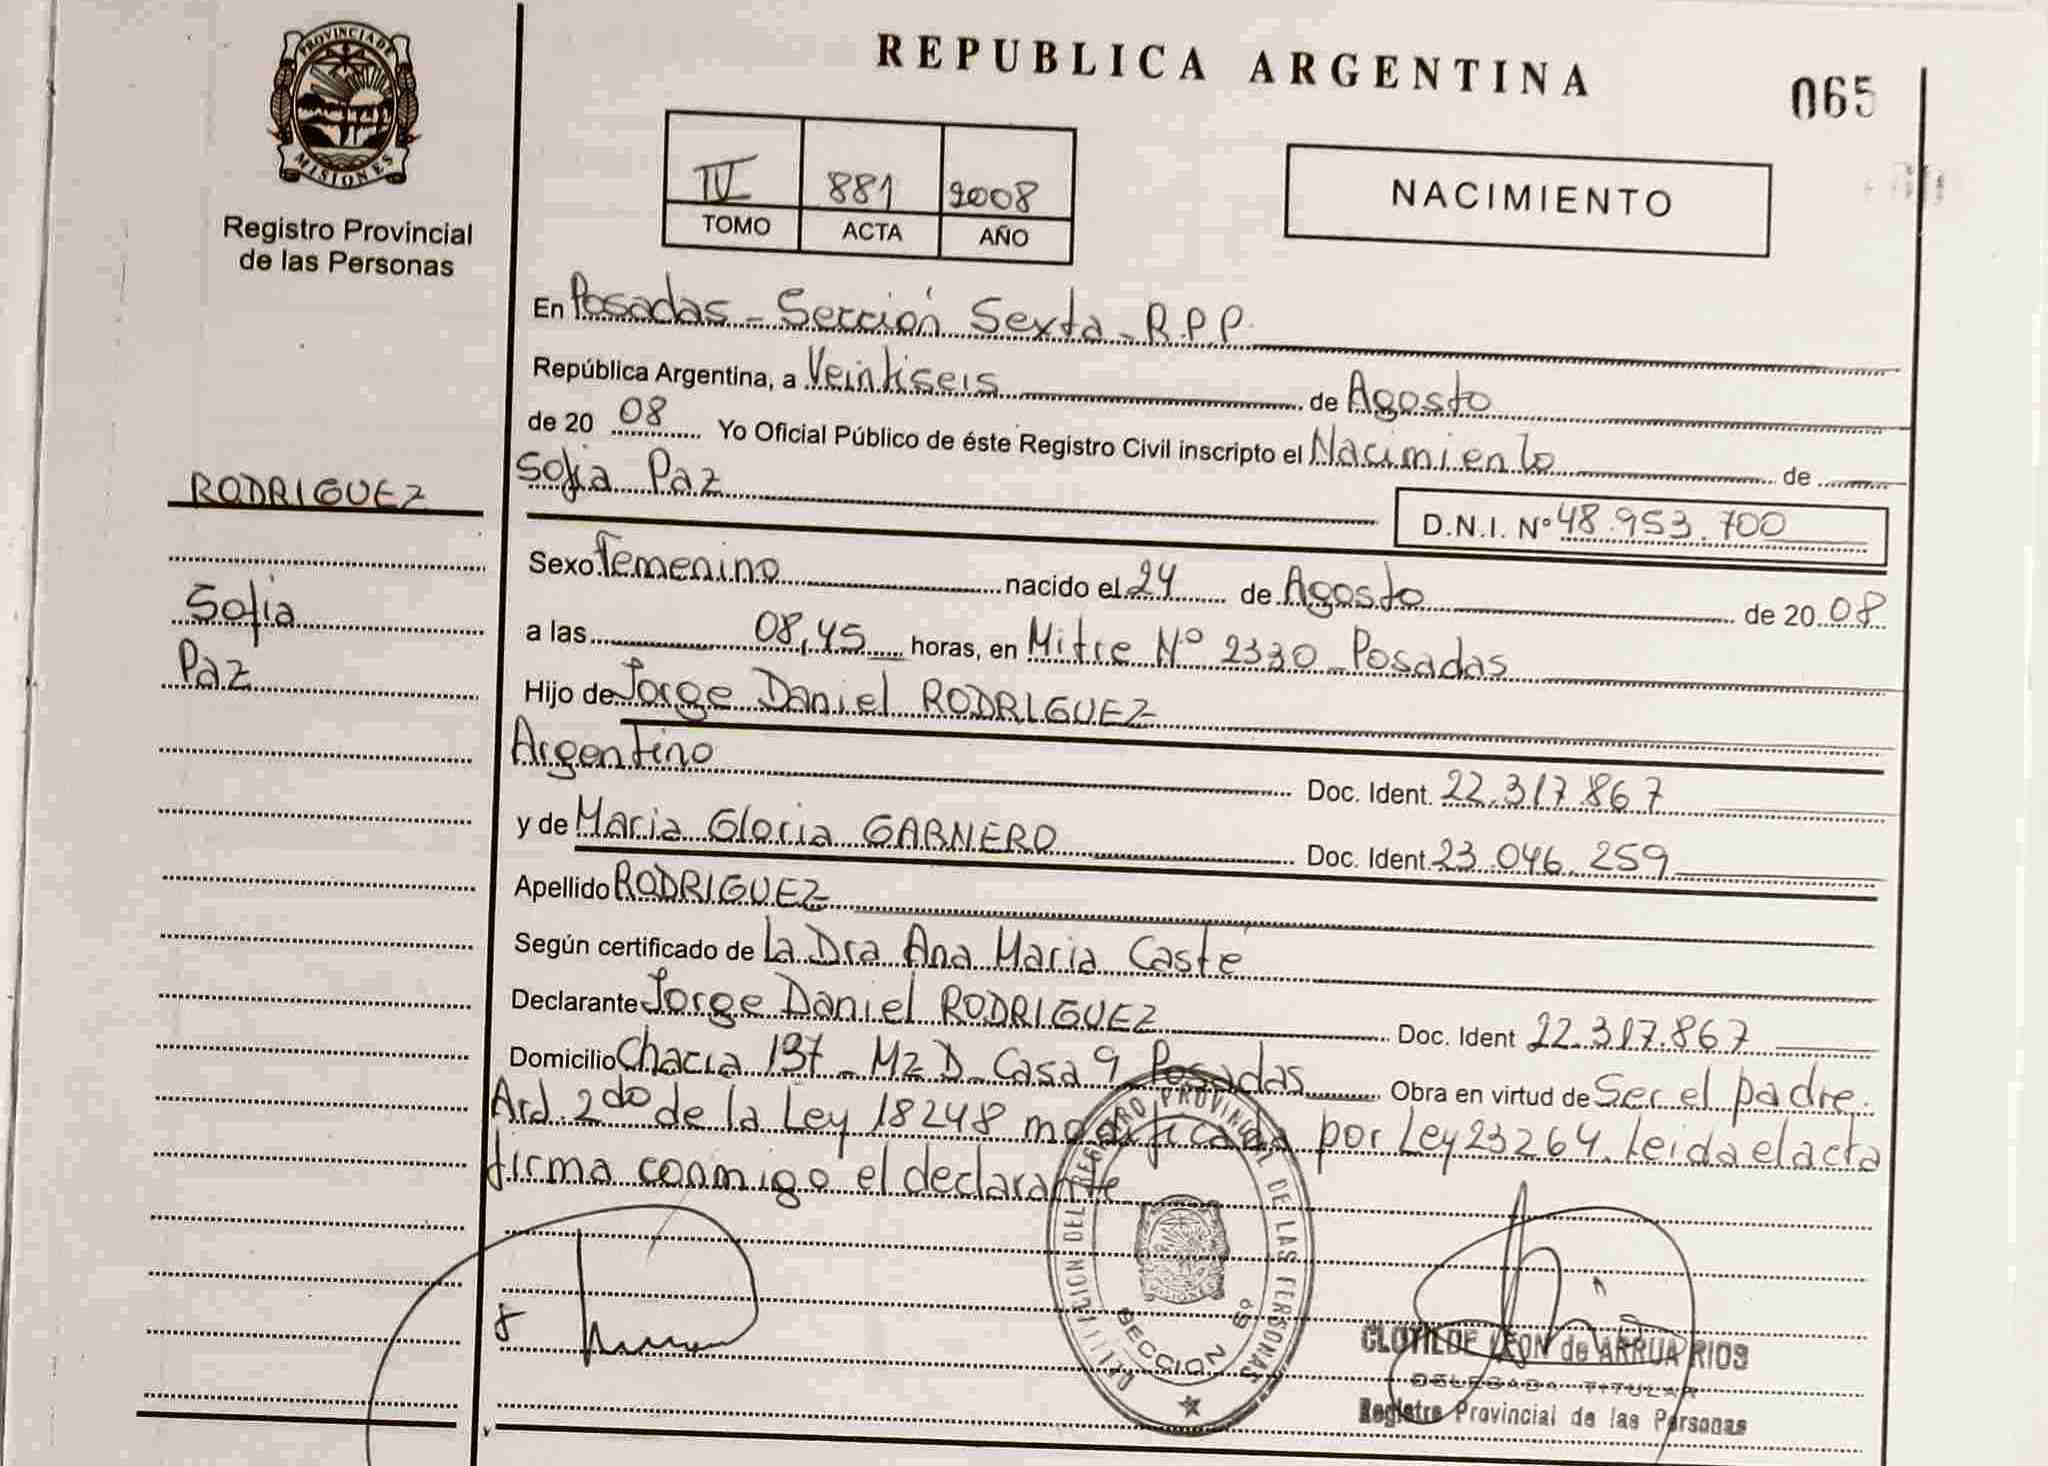 REPUBLICA ARGENTINA
065
PROVINCIA DE
MISIONES
Registro Provincial
de las Personas
IV 881 2008
TOMO ACTA AÑO
NACIMIENTO
En Posadas - Sección Sexta - R.P.P.
República Argentina, a Veintiseis de Agosto
de 20 08 Yo Oficial Público de éste Registro Civil inscripto el Nacimiento de
Sofia Paz
D.N.I. Nº 48.953.700
RODRIGUEZ
Sofia
Paz
Sexo Femenino nacido el 24 de Agosto de 20 08
a las 08,45 horas, en Mitre Nº 2330 - Posadas
Hijo de Jorge Daniel RODRIGUEZ
Argentino Doc. Ident. 22.317.867
y de Maria Gloria GARNERO Doc. Ident. 23.046.259
Apellido RODRIGUEZ
Según certificado de La Dra Ana Maria Caste
Declarante Jorge Daniel RODRIGUEZ Doc. Ident 22.317.867
Domicilio Chacra 137 - Mz D - Casa 9 - Posadas Obra en virtud de Ser el padre.
Art. 2do de la Ley 18248 modificada por Ley 23264. Leida el acta
firma conmigo el declarante
DEL REGISTRO PROVINCIAL DE LAS PERSONAS
SECCION 6º
CLOTILDE LEON de ARRUA RIOS
DELEGADA TITULAR
Registro Provincial de las Personas